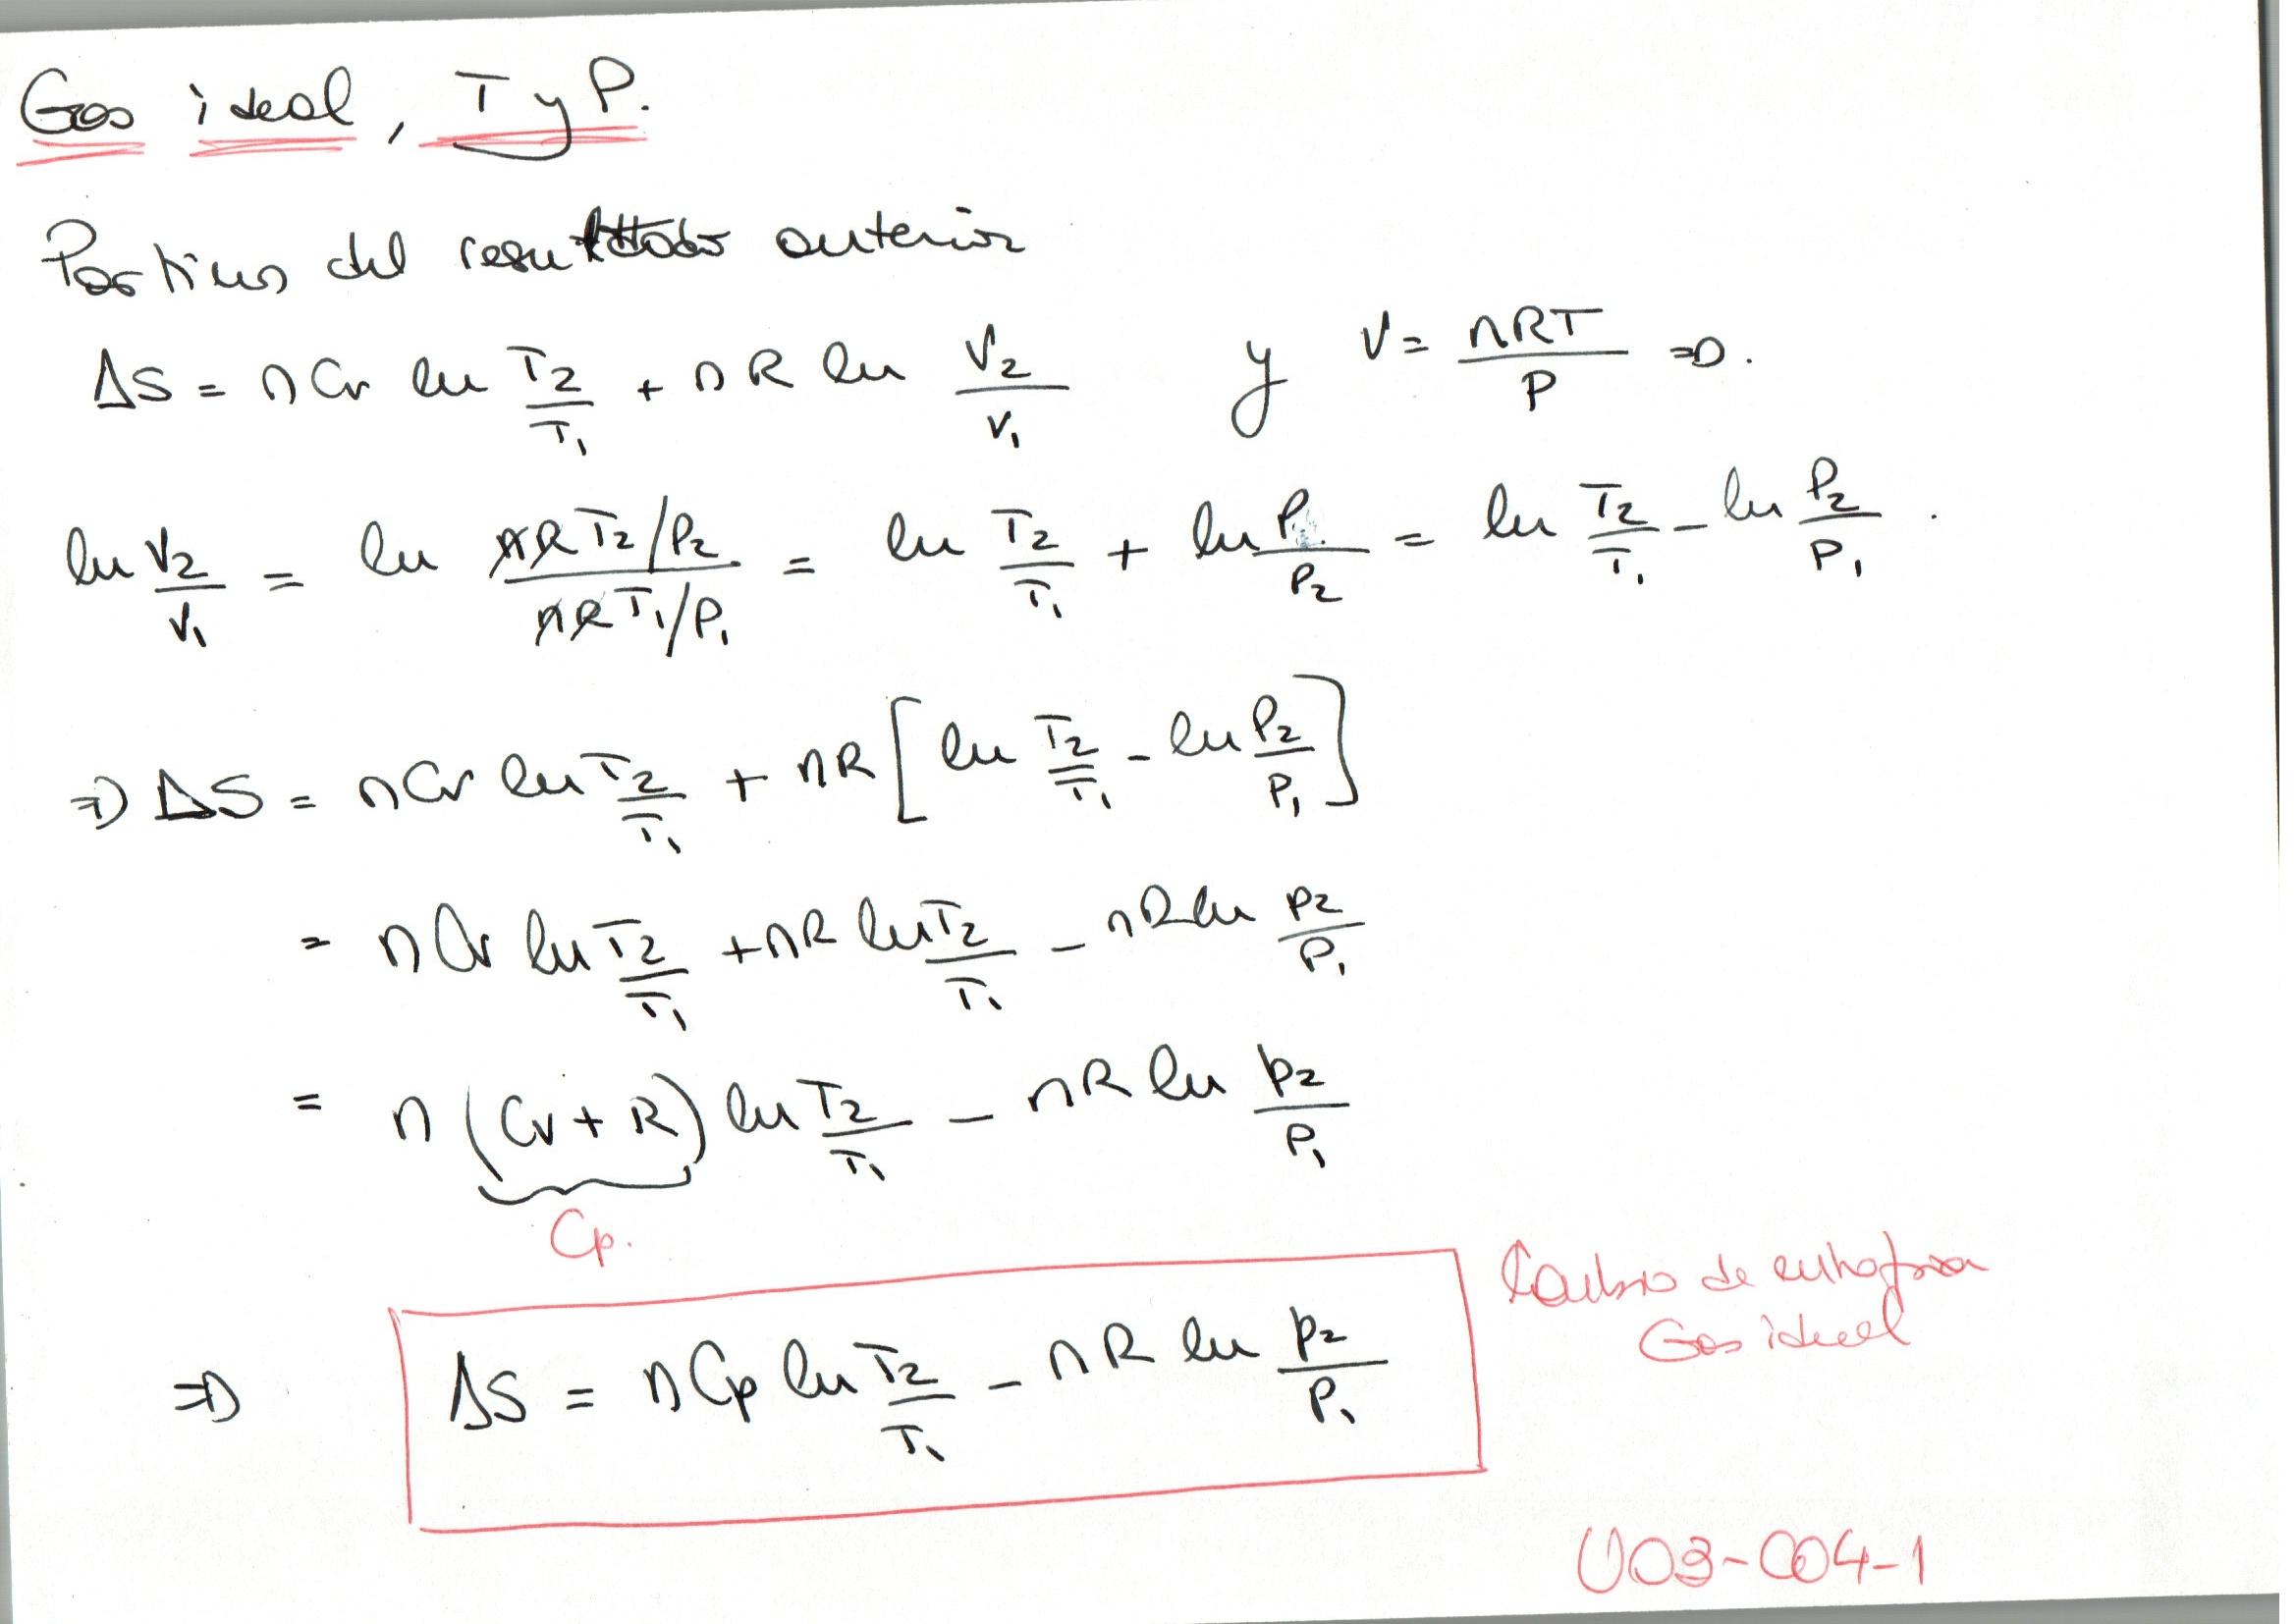 Gas ideal, T y P.
Partimos del resultado anterior
ΔS = n Cv ln T2/T1 + n R ln V2/V1 y V = nRT/P ⇒.
ln V2/V1 = ln (nRT2/P2)/(nRT1/P1) = ln T2/T1 + ln P1/P2 = ln T2/T1 - ln P2/P1.
⇒ ΔS = n Cv ln T2/T1 + nR [ln T2/T1 - ln P2/P1]
= n Cv ln T2/T1 + nR ln T2/T1 - nR ln P2/P1
= n (Cv + R) ln T2/T1 - nR ln P2/P1
Cp.
⇒ ΔS = n Cp ln T2/T1 - nR ln P2/P1
Cambio de entropía
Gas ideal
U03-C04-1